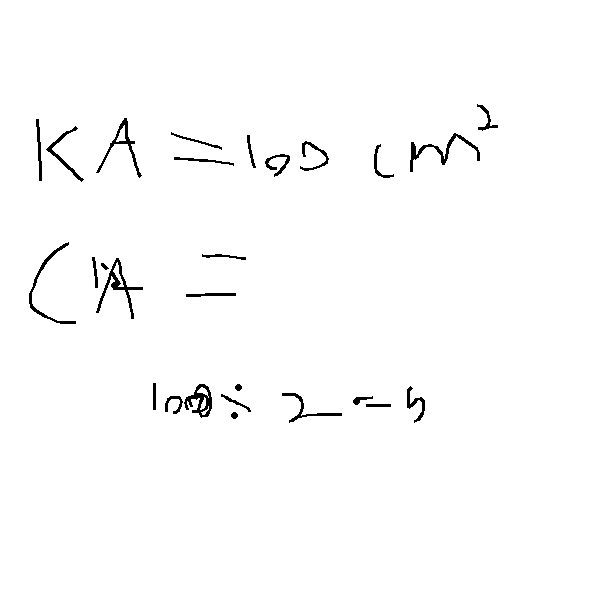 KA = 100 cm²
CA =
100 ÷ 2 = 5